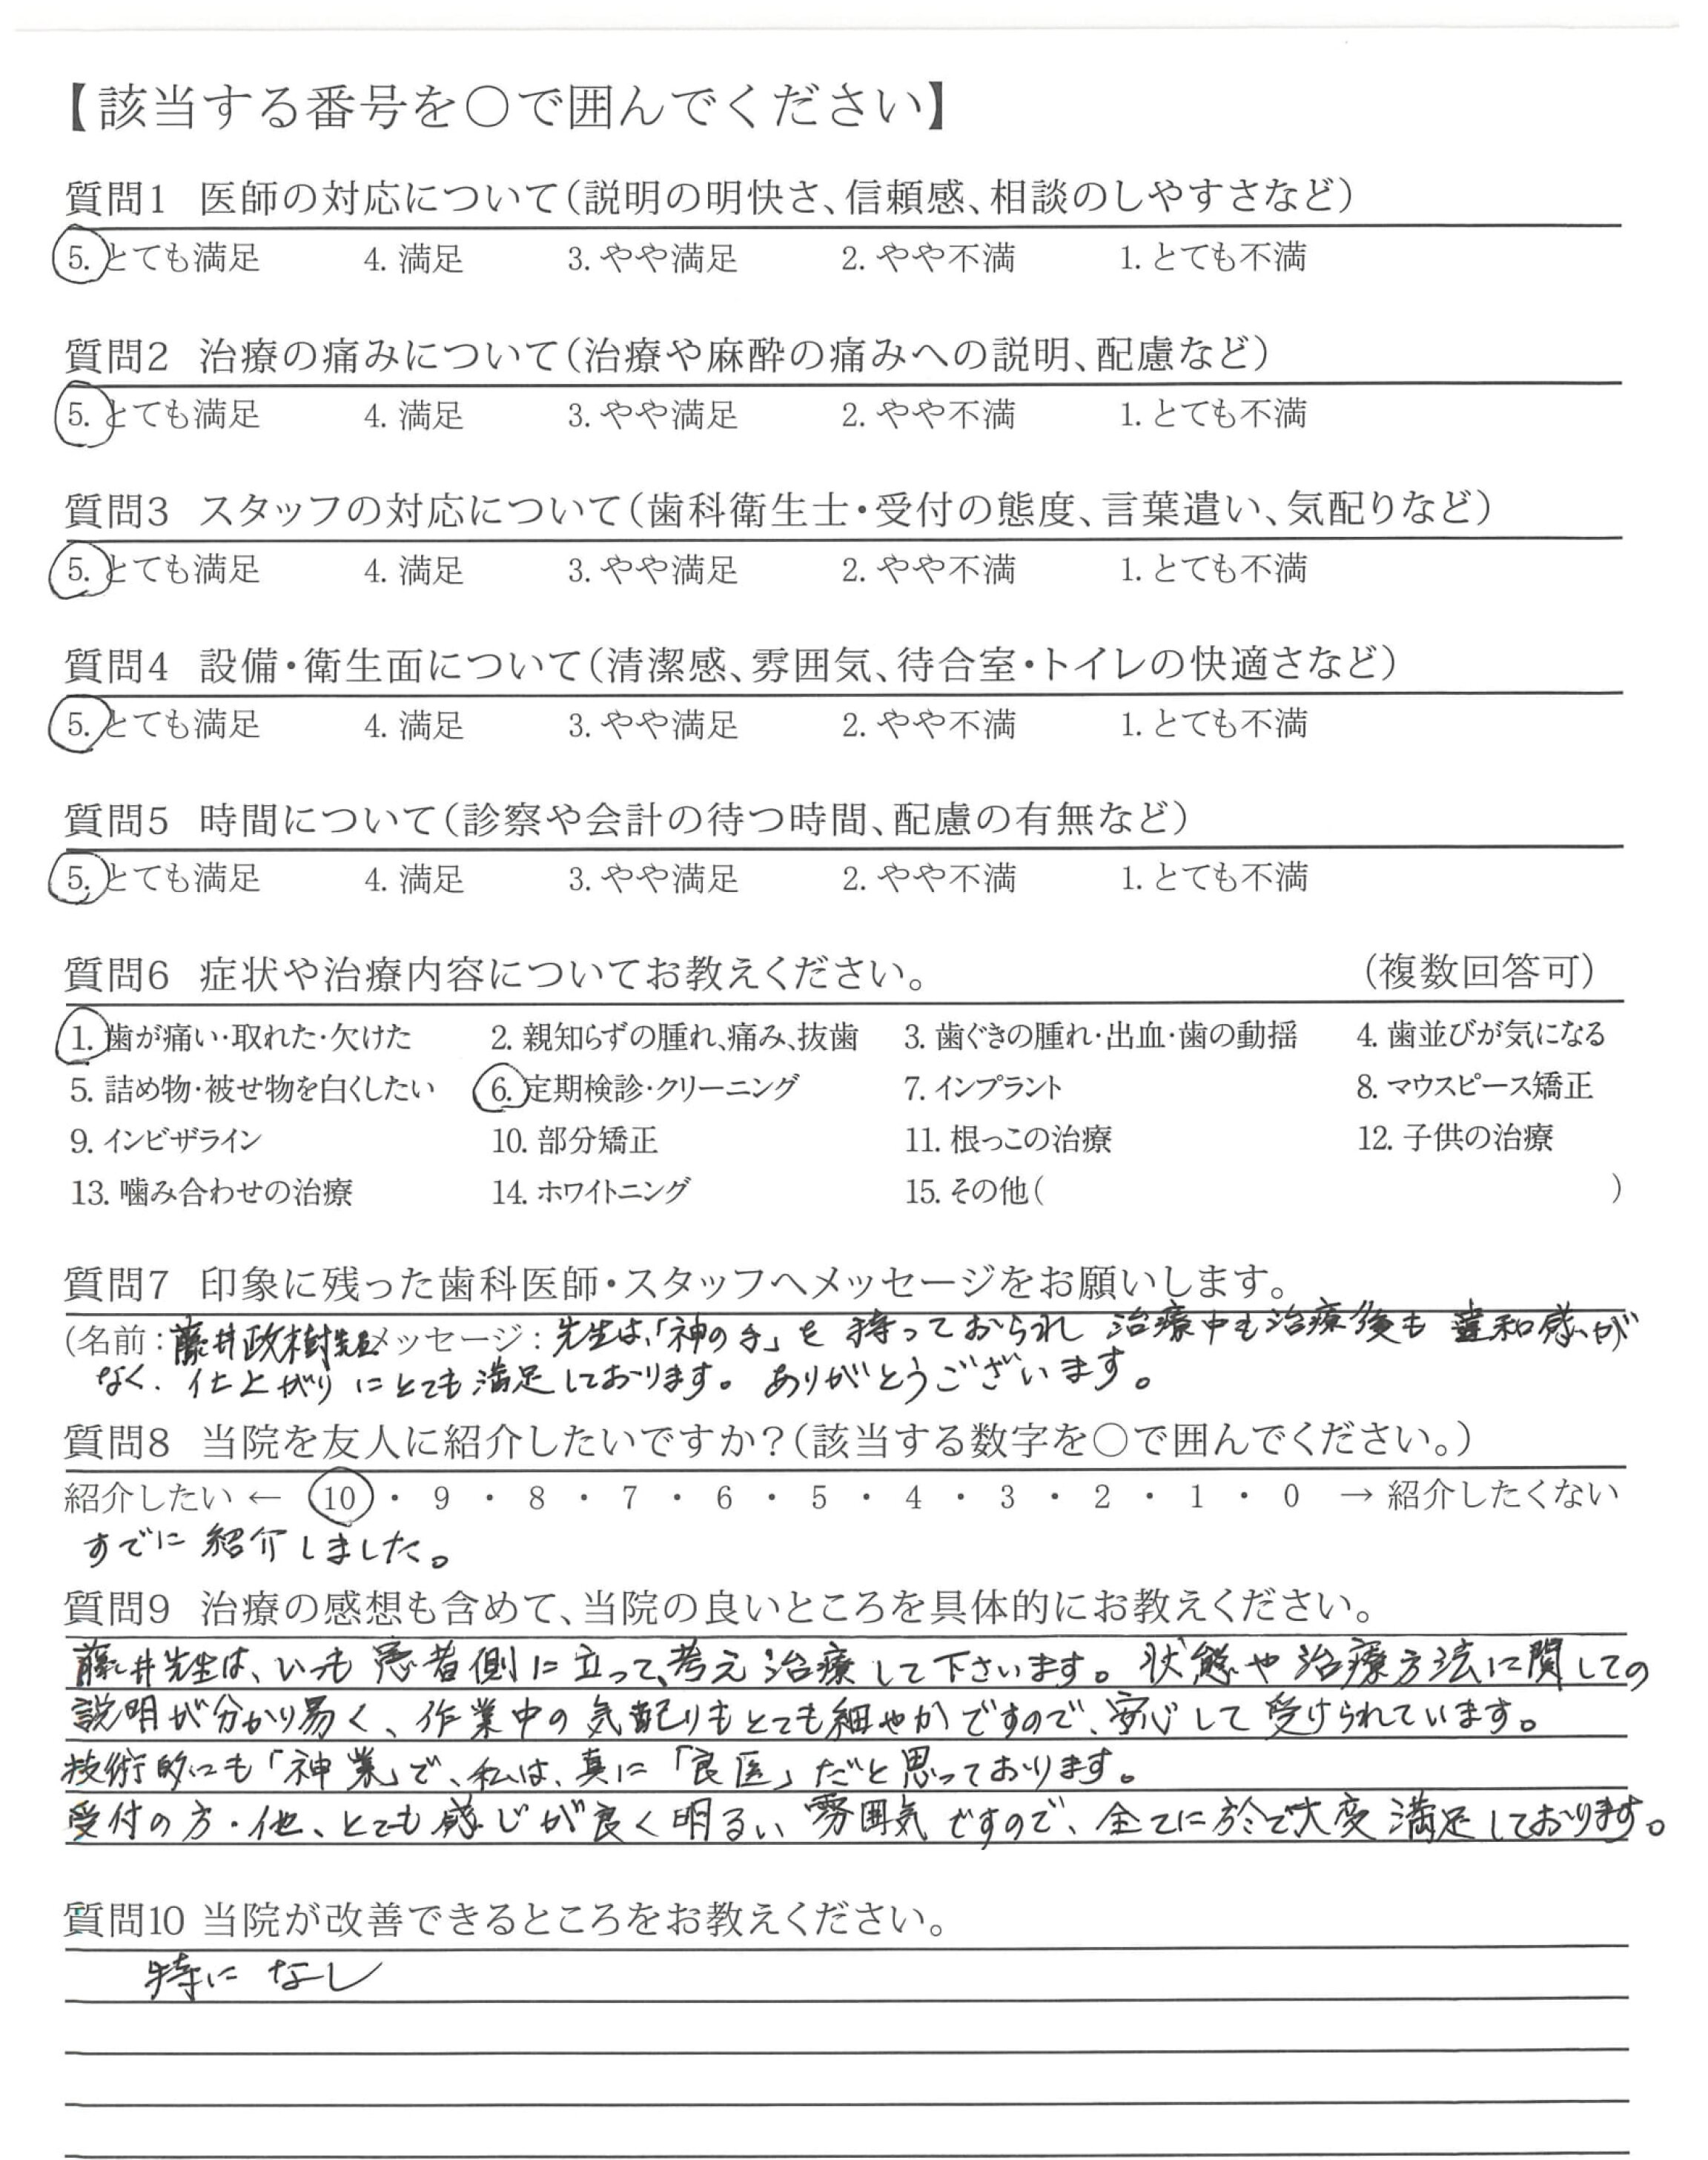 【該当する番号を○で囲んでください】
質問1 医師の対応について（説明の明快さ、信頼感、相談のしやすさなど）
5. とても満足 4. 満足 3. やや満足 2. やや不満 1. とても不満
質問2 治療の痛みについて（治療や麻酔の痛みへの説明、配慮など）
5. とても満足 4. 満足 3. やや満足 2. やや不満 1. とても不満
質問3 スタッフの対応について（歯科衛生士・受付の態度、言葉遣い、気配りなど）
5. とても満足 4. 満足 3. やや満足 2. やや不満 1. とても不満
質問4 設備・衛生面について（清潔感、雰囲気、待合室・トイレの快適さなど）
5. とても満足 4. 満足 3. やや満足 2. やや不満 1. とても不満
質問5 時間について（診察や会計の待つ時間、配慮の有無など）
5. とても満足 4. 満足 3. やや満足 2. やや不満 1. とても不満
質問6 症状や治療内容についてお教えください。 （複数回答可）
1. 歯が痛い・取れた・欠けた 2. 親知らずの腫れ、痛み、抜歯 3. 歯ぐきの腫れ・出血・歯の動揺 4. 歯並びが気になる
5. 詰め物・被せ物を白くしたい 6. 定期検診・クリーニング 7. インプラント 8. マウスピース矯正
9. インビザライン 10. 部分矯正 11. 根っこの治療 12. 子供の治療
13. 噛み合わせの治療 14. ホワイトニング 15. その他（ ）
質問7 印象に残った歯科医師・スタッフへメッセージをお願いします。
（名前：藤井政樹先生メッセージ：先生は、「神の手」を持っておられ 治療中も治療後も違和感が
なく、仕上がりにとても満足しております。ありがとうございます。
質問8 当院を友人に紹介したいですか？（該当する数字を○で囲んでください。）
紹介したい ← 10 ・ 9 ・ 8 ・ 7 ・ 6 ・ 5 ・ 4 ・ 3 ・ 2 ・ 1 ・ 0 → 紹介したくない
すでに紹介しました。
質問9 治療の感想も含めて、当院の良いところを具体的にお教えください。
藤井先生は、いつも患者側に立って、考え治療して下さいます。状態や治療方法に関しての
説明が分かり易く、作業中の気配りもとても細やかですので、安心して受けられています。
技術的にも「神業」で、私は、真に「良医」だと思っております。
受付の方・他、とても感じが良く明るい雰囲気ですので、全てに於て大変満足しております。
質問10 当院が改善できるところをお教えください。
特になし